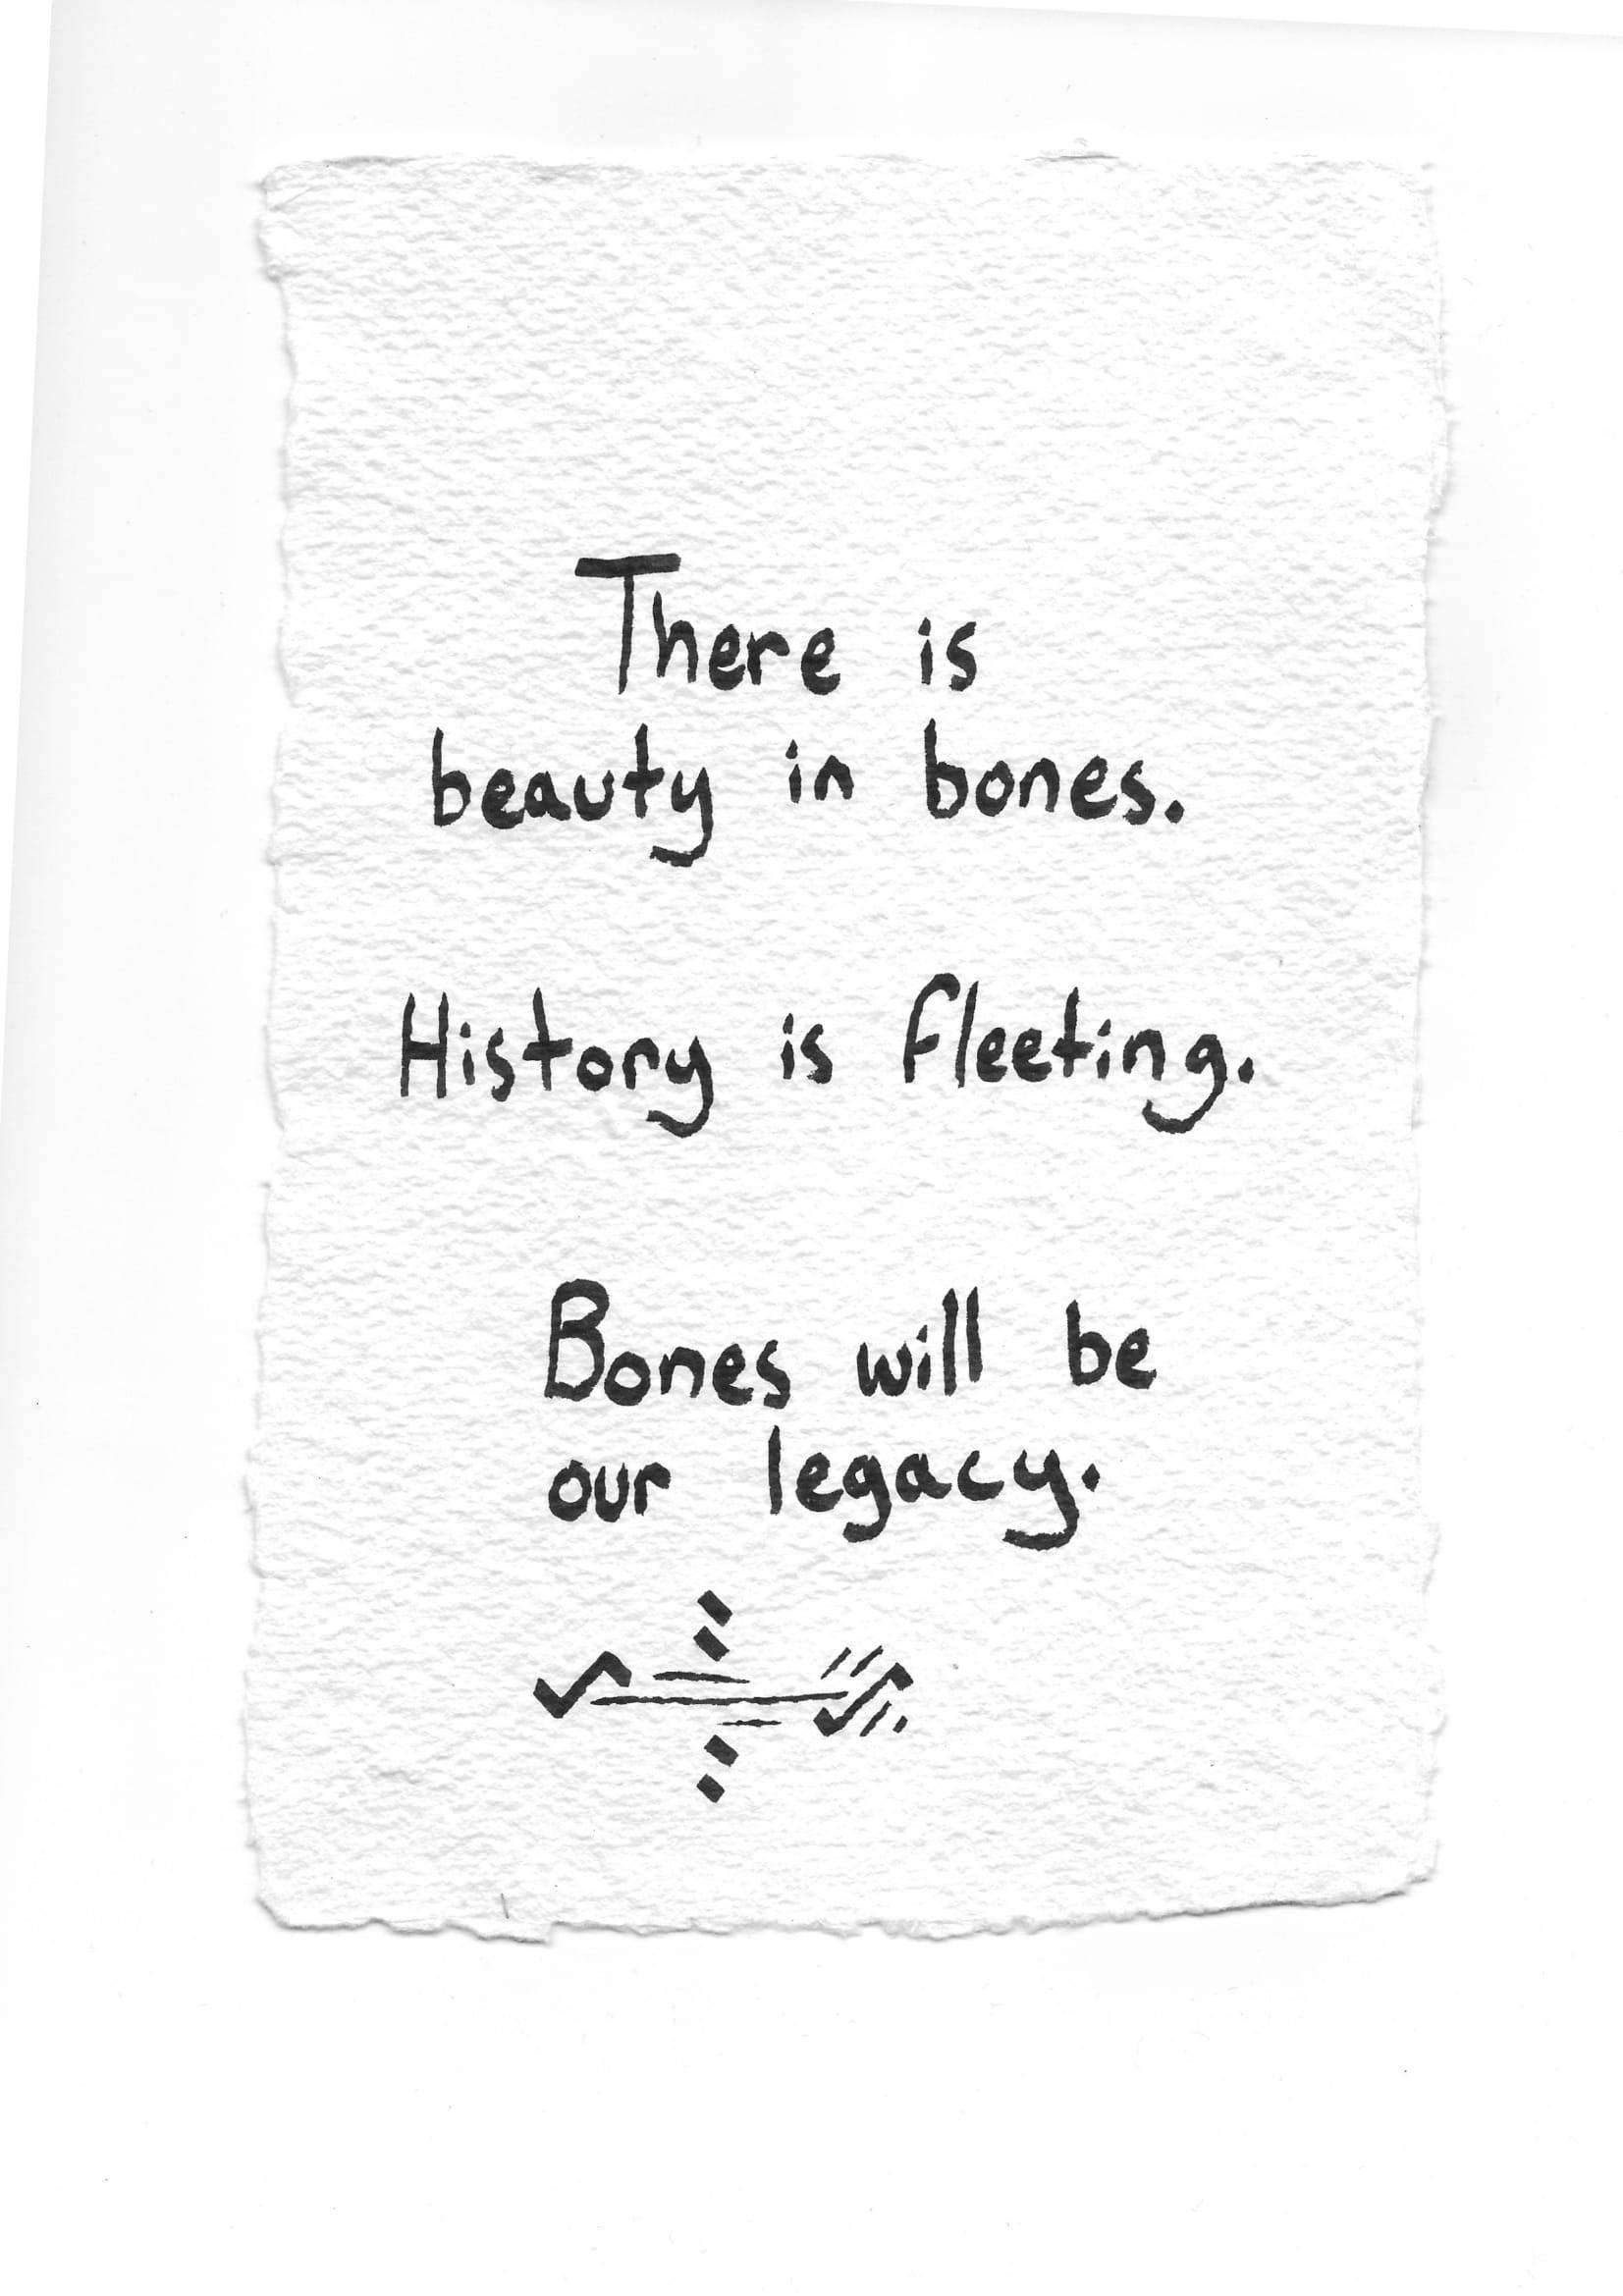 There is
beauty in bones.
History is fleeting.
Bones will be
our legacy.